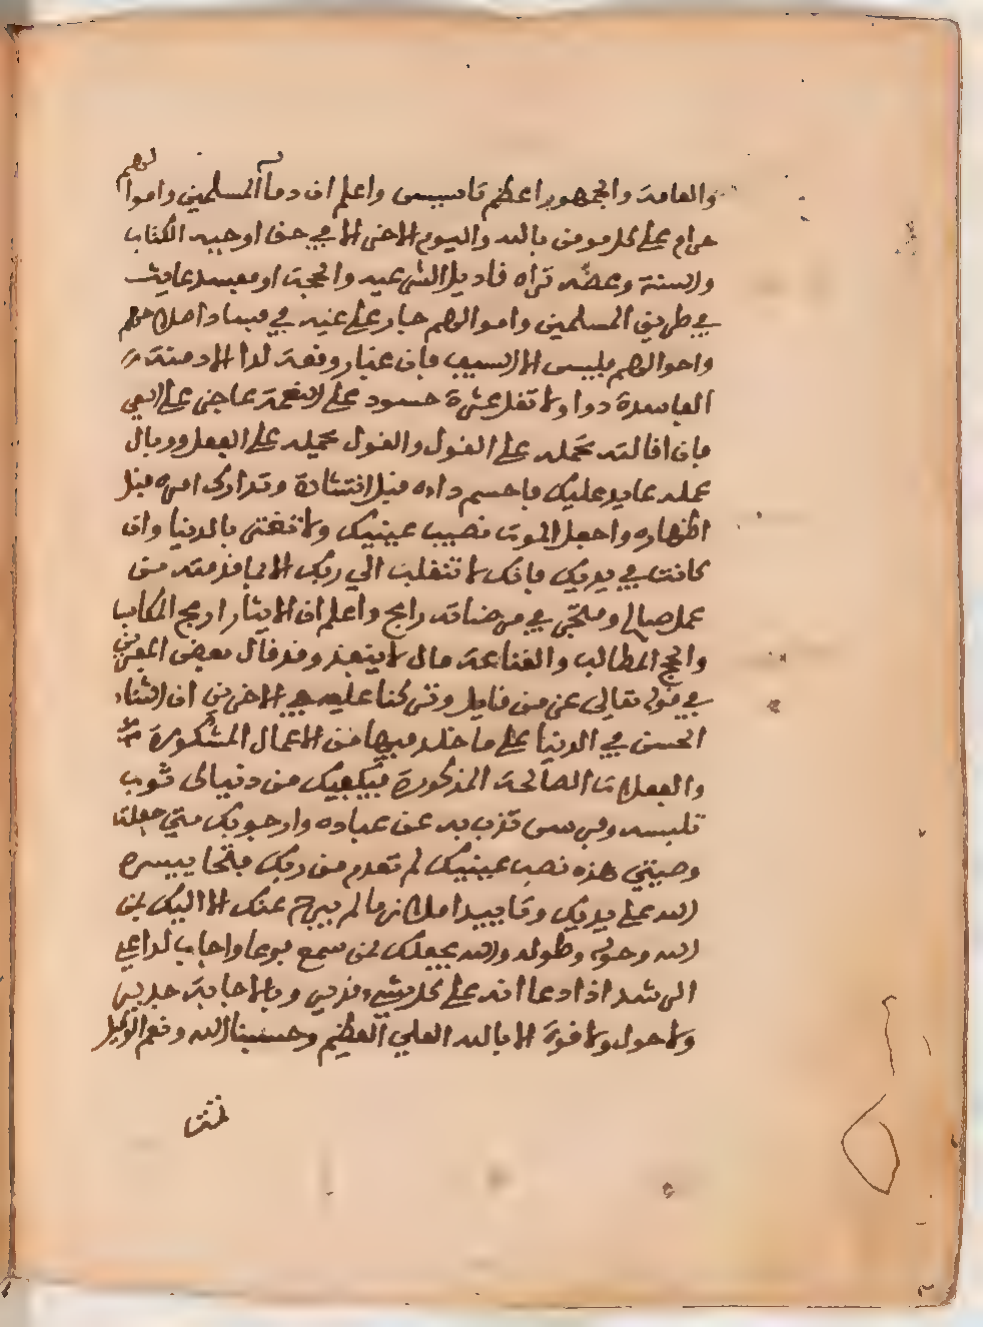 والعامة والجمهور اعظم تاسيس واعلم ان دماء المسلمين واموالهم
حرام على كل مومن بالله واليوم الاخر الا في حق اوجبه الكتاب
والسنة وعضده تراه الشرعية والحجة او مفسد عايث
في طريق المسلمين واموالهم جار على غيه في فساد اصلاحهم
واحوالهم فليس الا السيف فان
الفاسدة دوا ولا تقل عثرة حسود على النعمة عاجز على السعي
فان اقالته تحمله على القول والقول يحمله على الفعل ووبال
عمله عايد عليك فاحسم داءه قبل انتشاره وتدارك امره قبل
اظهاره واجعل الموت نصيب عينيك ولا تغتر بالدنيا وان
كانت في يديك فانك لا تنقلب الى ربك الا بما قدمته من
عمل صالح ومتجر في مرضاته رابح واعلم ان الايثار اربح المكاسب
وانجح المطالب والقناعة مال لا ينفد وقد قال بعض المفسرين
في قوله تعالى عز من قايل وتركنا عليه في الاخرين ان الثناء
الحسن في الدنيا على ما خلد فيها من الاعمال المشكورة
والفعلات الصالحة المذكورة فيكفيك من دنياك ثوب
تلبسه وفرس تذب به عن عباده وارجو بك متى جعلت
وصيتي هذه نصب عينيك لم تعدم من ربك فتحا ييسره
الله على يديك وتاييدا ملازما لم يبرح عنك الا اليك بمن
الله وحوله وطوله والله يجعلك ممن سمع فوعا واجاب لداعي
الرشد اذا دعا انه على كل شيء قدير وبالاجابة جدير
ولا حول ولا قوة الا بالله العلي العظيم وحسبنا الله ونعم الوكيل
تمت